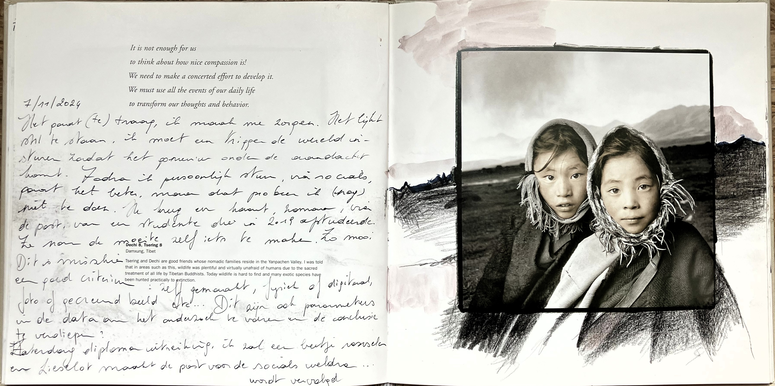 It is not enough for us
to think about how nice compassion is!
We need to make a concerted effort to develop it.
We must use all the events of our daily life
to transform our thoughts and behavior.
7/11/2024
Het gaat (te) traag, ik maak me zorgen. Het lijkt
stil te staan, ik moet een trigger de wereld in-
sturen zodat het opnieuw onder de aandacht
komt. Zodra ik persoonlijk stuur, via socials,
gaat het beter, maar dat probeer ik (nog)
niet te doen. Ik kreeg een kaart, via
de post, van een studente die in 2019 afstudeerde.
Ze nam de moeite zelf iets te maken. Zo mooi.
Dechi 8, Tsering 8
Damxung, Tibet
Tsering and Dechi are good friends whose nomadic families reside in the Yanpachen Valley. I was told
that in areas such as this, wildlife was plentiful and virtually unafraid of humans due to the sacred
treatment of all life by Tibetan Buddhists. Today wildlife is hard to find and many exotic species have
been hunted practically to extinction.
Dit is misschien
een goed criterium
zelf gemaakt, fysiek of digitaal,
foto of gecreëerd beeld etc... Dit zijn ook parameters
in de data om het onderzoek te voeren en de conclusie
te verdiepen!
Zaterdag diploma uitreiking, ik zal een beetje
en Lieselot maakt de post voor de socials weldra...
wordt vervolgd